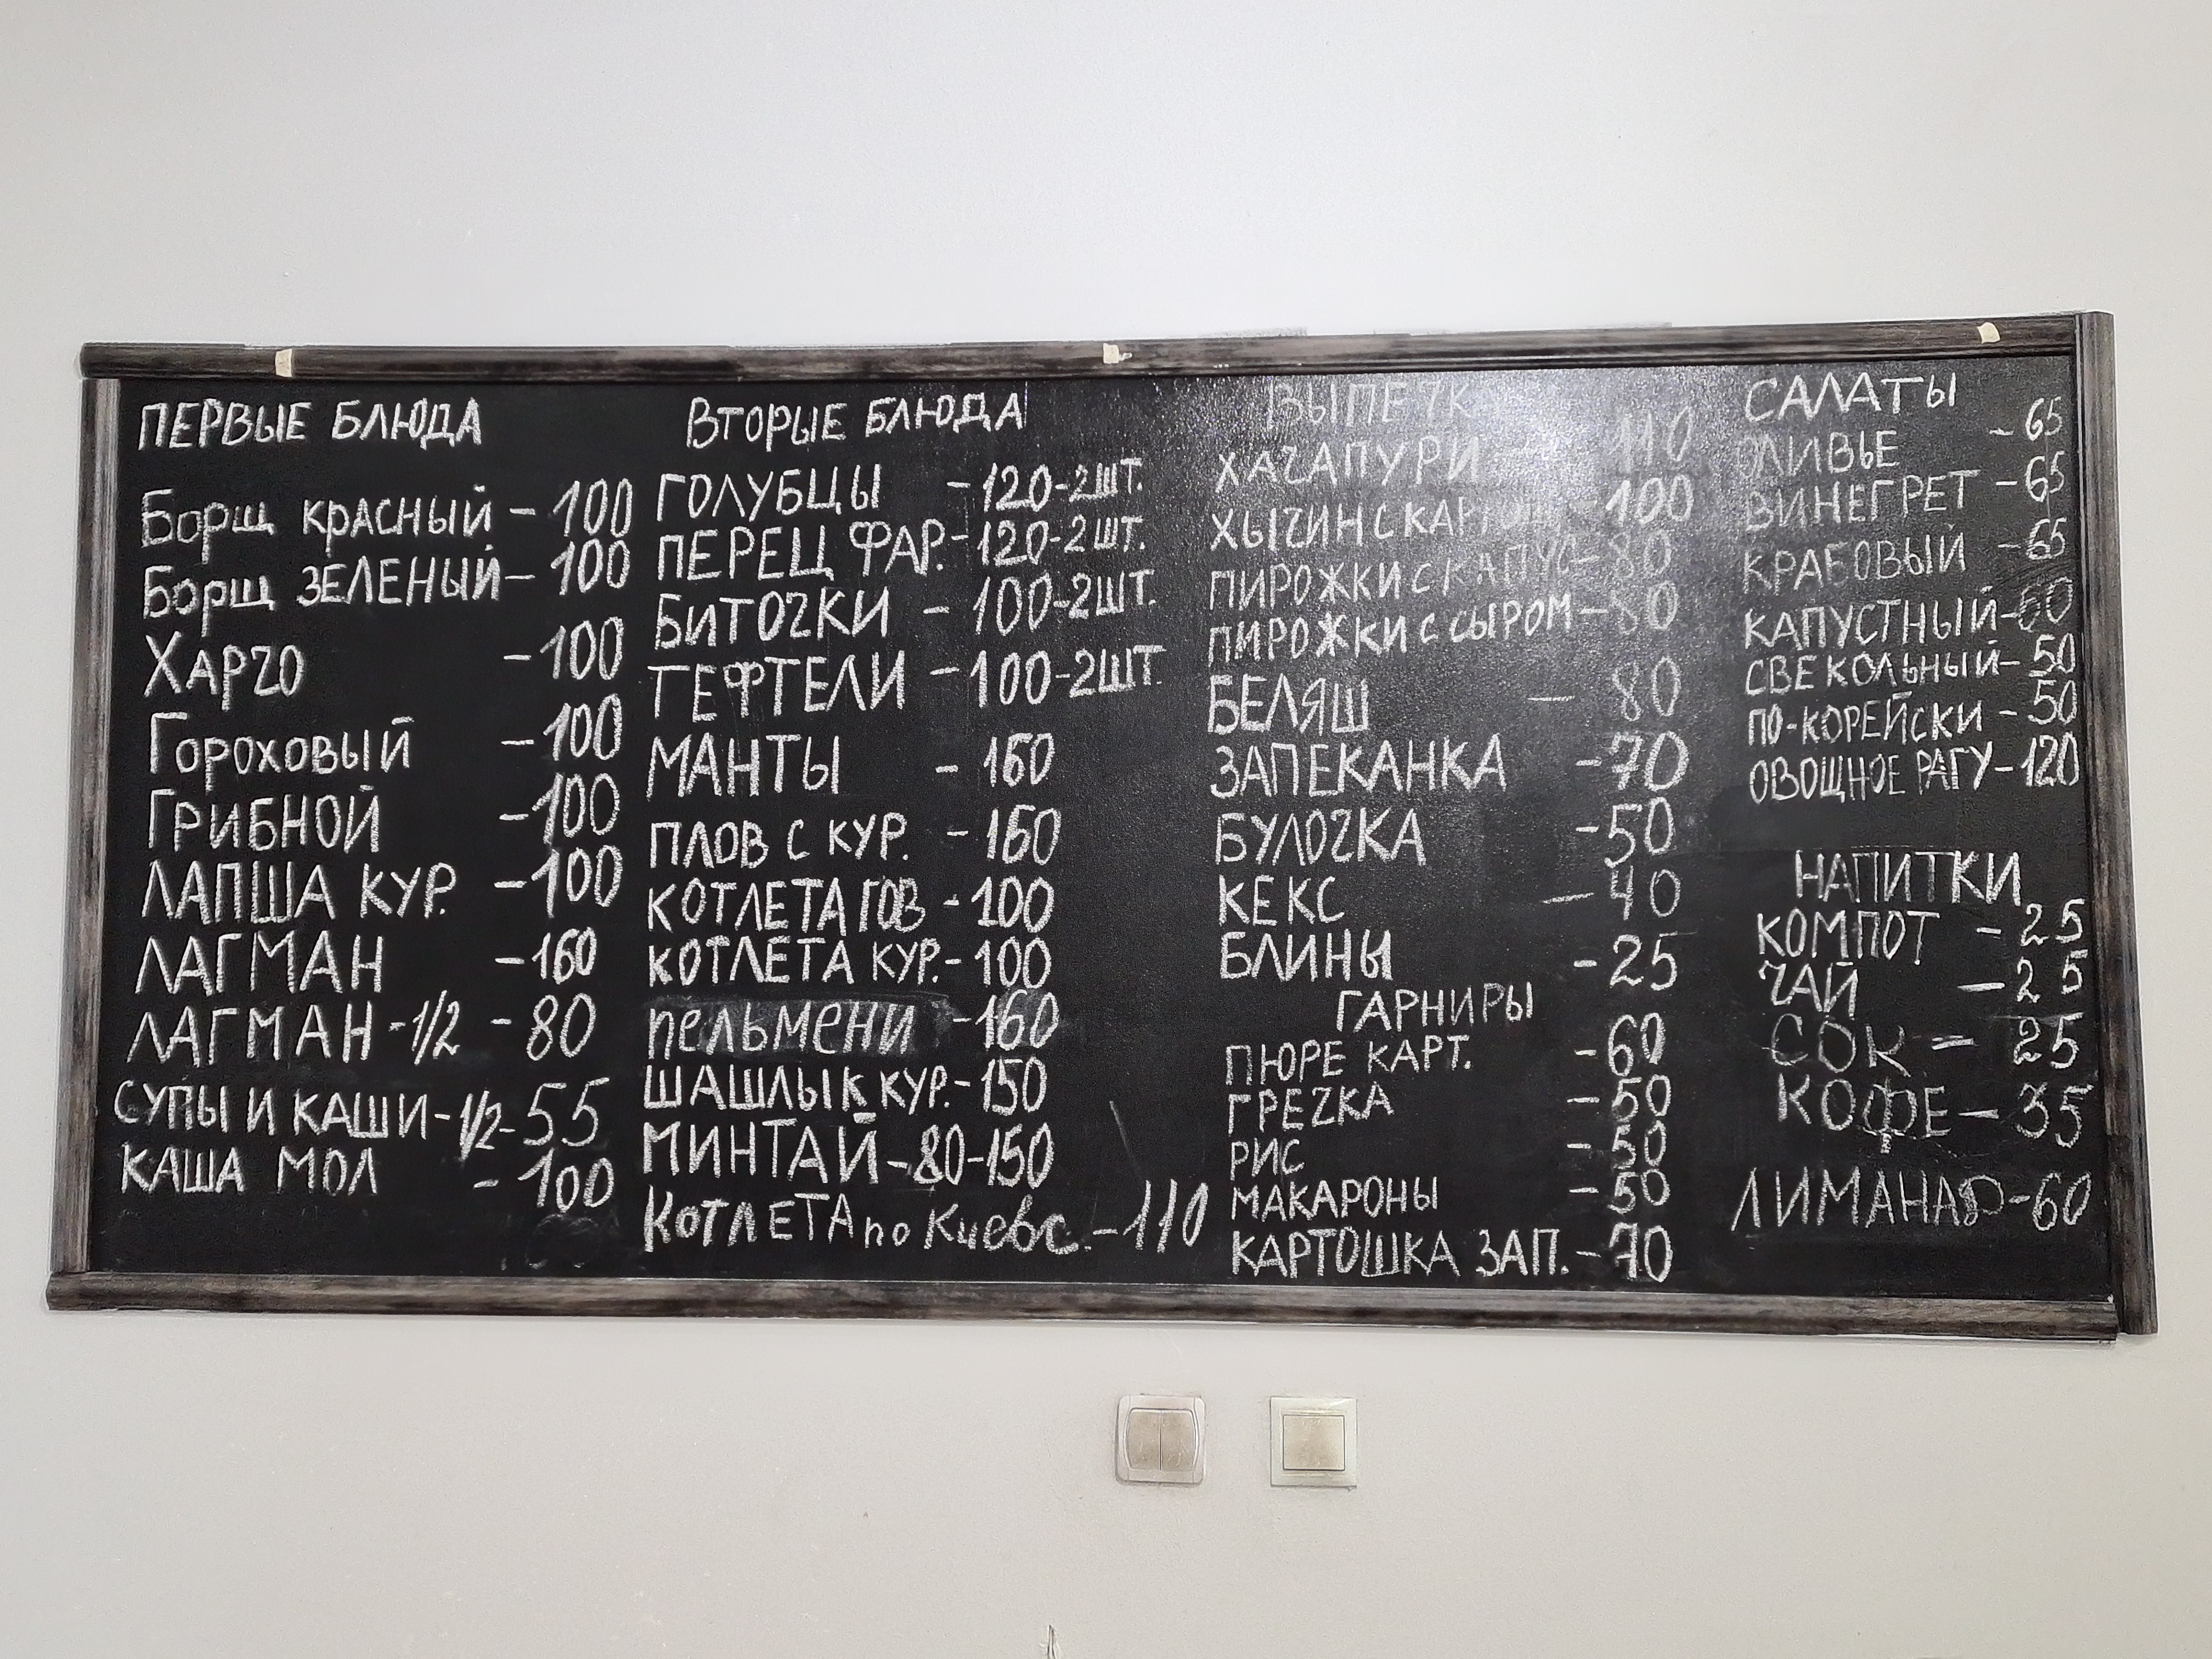 ПЕРВЫЕ БЛЮДА
Борщ красный - 100
Борщ зеленый - 100
Харчо - 100
Гороховый - 100
Грибной - 100
ЛАПША КУР. - 100
ЛАГМАН - 160
ЛАГМАН - 1/2 - 80
СУПЫ И КАШИ - 1/2 - 55
КАША МОЛ - 100
Вторые БЛЮДА
ГОЛУБЦЫ - 120 - 2 ШТ.
ПЕРЕЦ ФАР. - 120 - 2 ШТ.
БИТОЧКИ - 100 - 2 ШТ.
ТЕФТЕЛИ - 100 - 2 ШТ.
МАНТЫ - 160
ПЛОВ С КУР. - 160
КОТЛЕТА ГОВ - 100
КОТЛЕТА КУР. - 100
пельмени - 160
ШАШЛЫК КУР. - 150
МИНТАЙ - 80 - 150
Котлета по Киевс. - 110
ВЫПЕЧК
ХАЧАПУРИ 110
ХЫЧИН С КАРТОШ - 100
ПИРОЖКИ С КАПУС - 80
ПИРОЖКИ С СЫРОМ - 80
БЕЛЯШ - 80
ЗАПЕКАНКА - 70
БУЛОЧКА - 50
КЕКС - 40
БЛИНЫ - 25
ГАРНИРЫ
ПЮРЕ КАРТ. - 60
ГРЕЧКА - 50
РИС - 50
МАКАРОНЫ - 50
КАРТОШКА ЗАП. - 70
САЛАТЫ
ОЛИВЬЕ - 65
ВИНЕГРЕТ - 65
КРАБОВЫЙ - 65
КАПУСТНЫЙ - 60
СВЕКОЛЬНЫЙ - 50
ПО-КОРЕЙСКИ - 50
ОВОЩНОЕ РАГУ - 120
НАПИТКИ
КОМПОТ - 25
ЧАЙ - 25
СОК - 25
КОФЕ - 35
ЛИМАНАД - 60